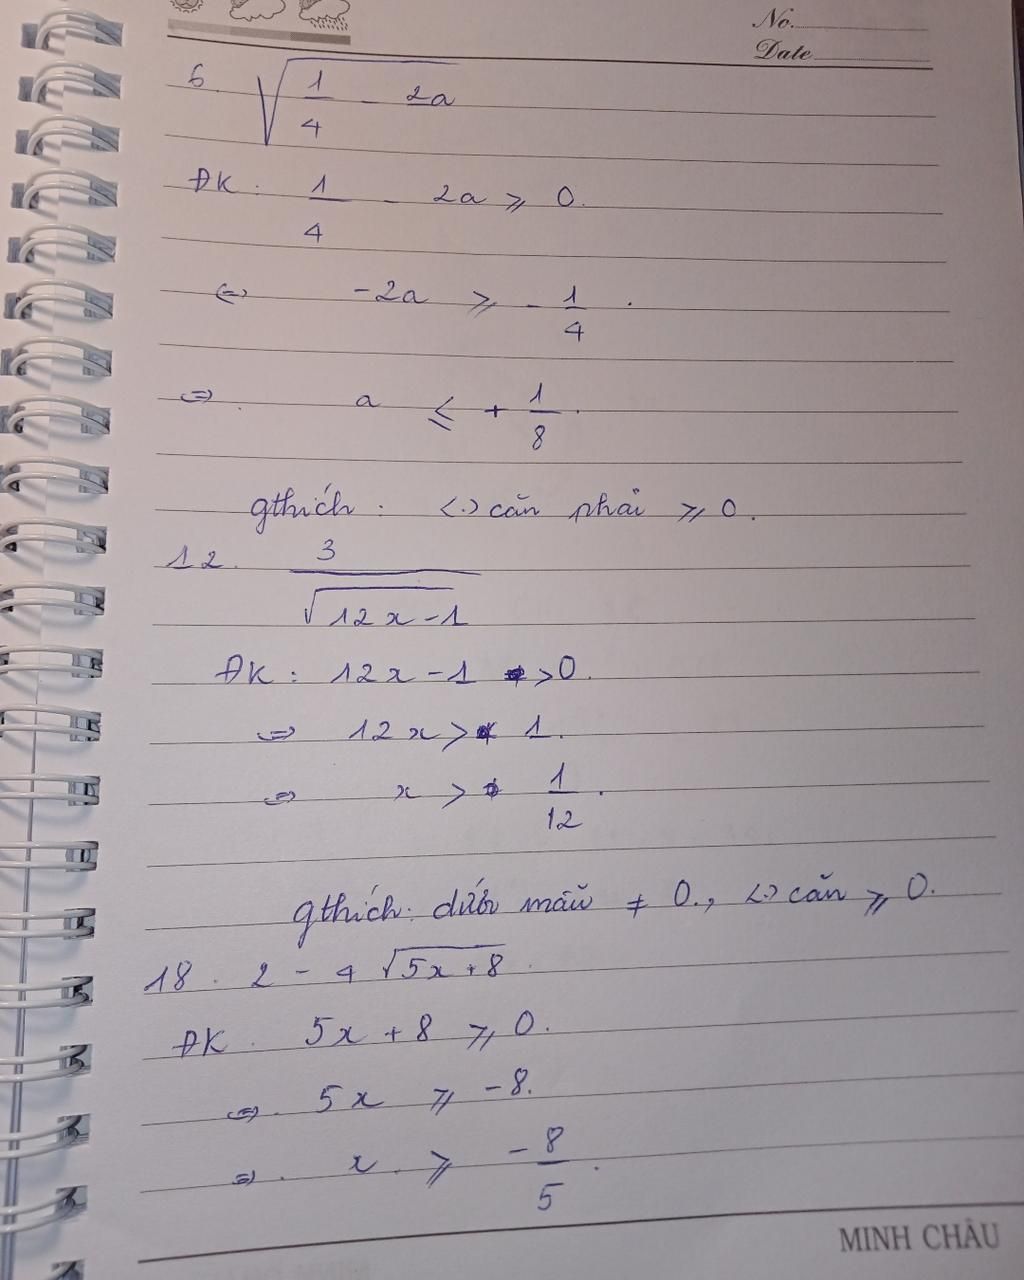 No.
Date
6. √(1/4 - 2a)
ĐK: 1/4 - 2a ≥ 0.
⇔ -2a ≥ -1/4.
⇔ a ≤ + 1/8.
gthích: <.> căn phải ≥ 0.
12. 3/√(12x-1)
ĐK: 12x-1 >0.
⇔ 12x > 1.
⇔ x > 1/12.
gthích: dưới mẫu ≠ 0., <.> căn ≥ 0.
18. 2 - 4√(5x+8).
ĐK. 5x + 8 ≥ 0.
⇔. 5x ≥ -8.
⇔. x. ≥ -8/5.
MINH CHÂU